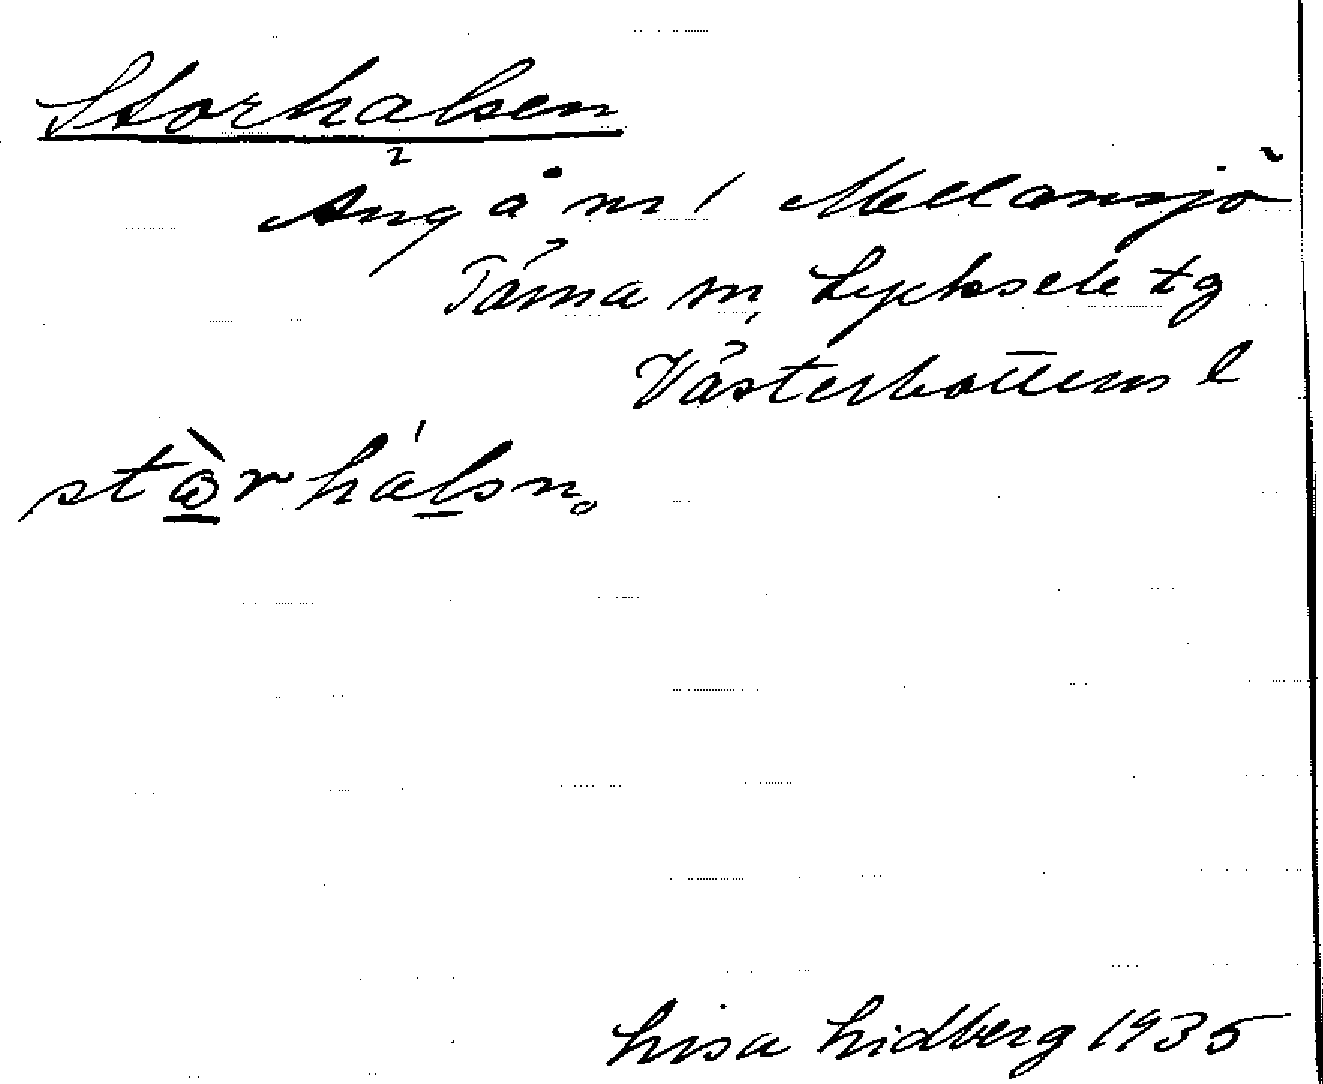 Storhalsen
Äng å nr 1 Mellansjö
Tärna sn, Lycksele tg
Västerbottens l
stòrhálsn̥
Lisa Lidberg 1935